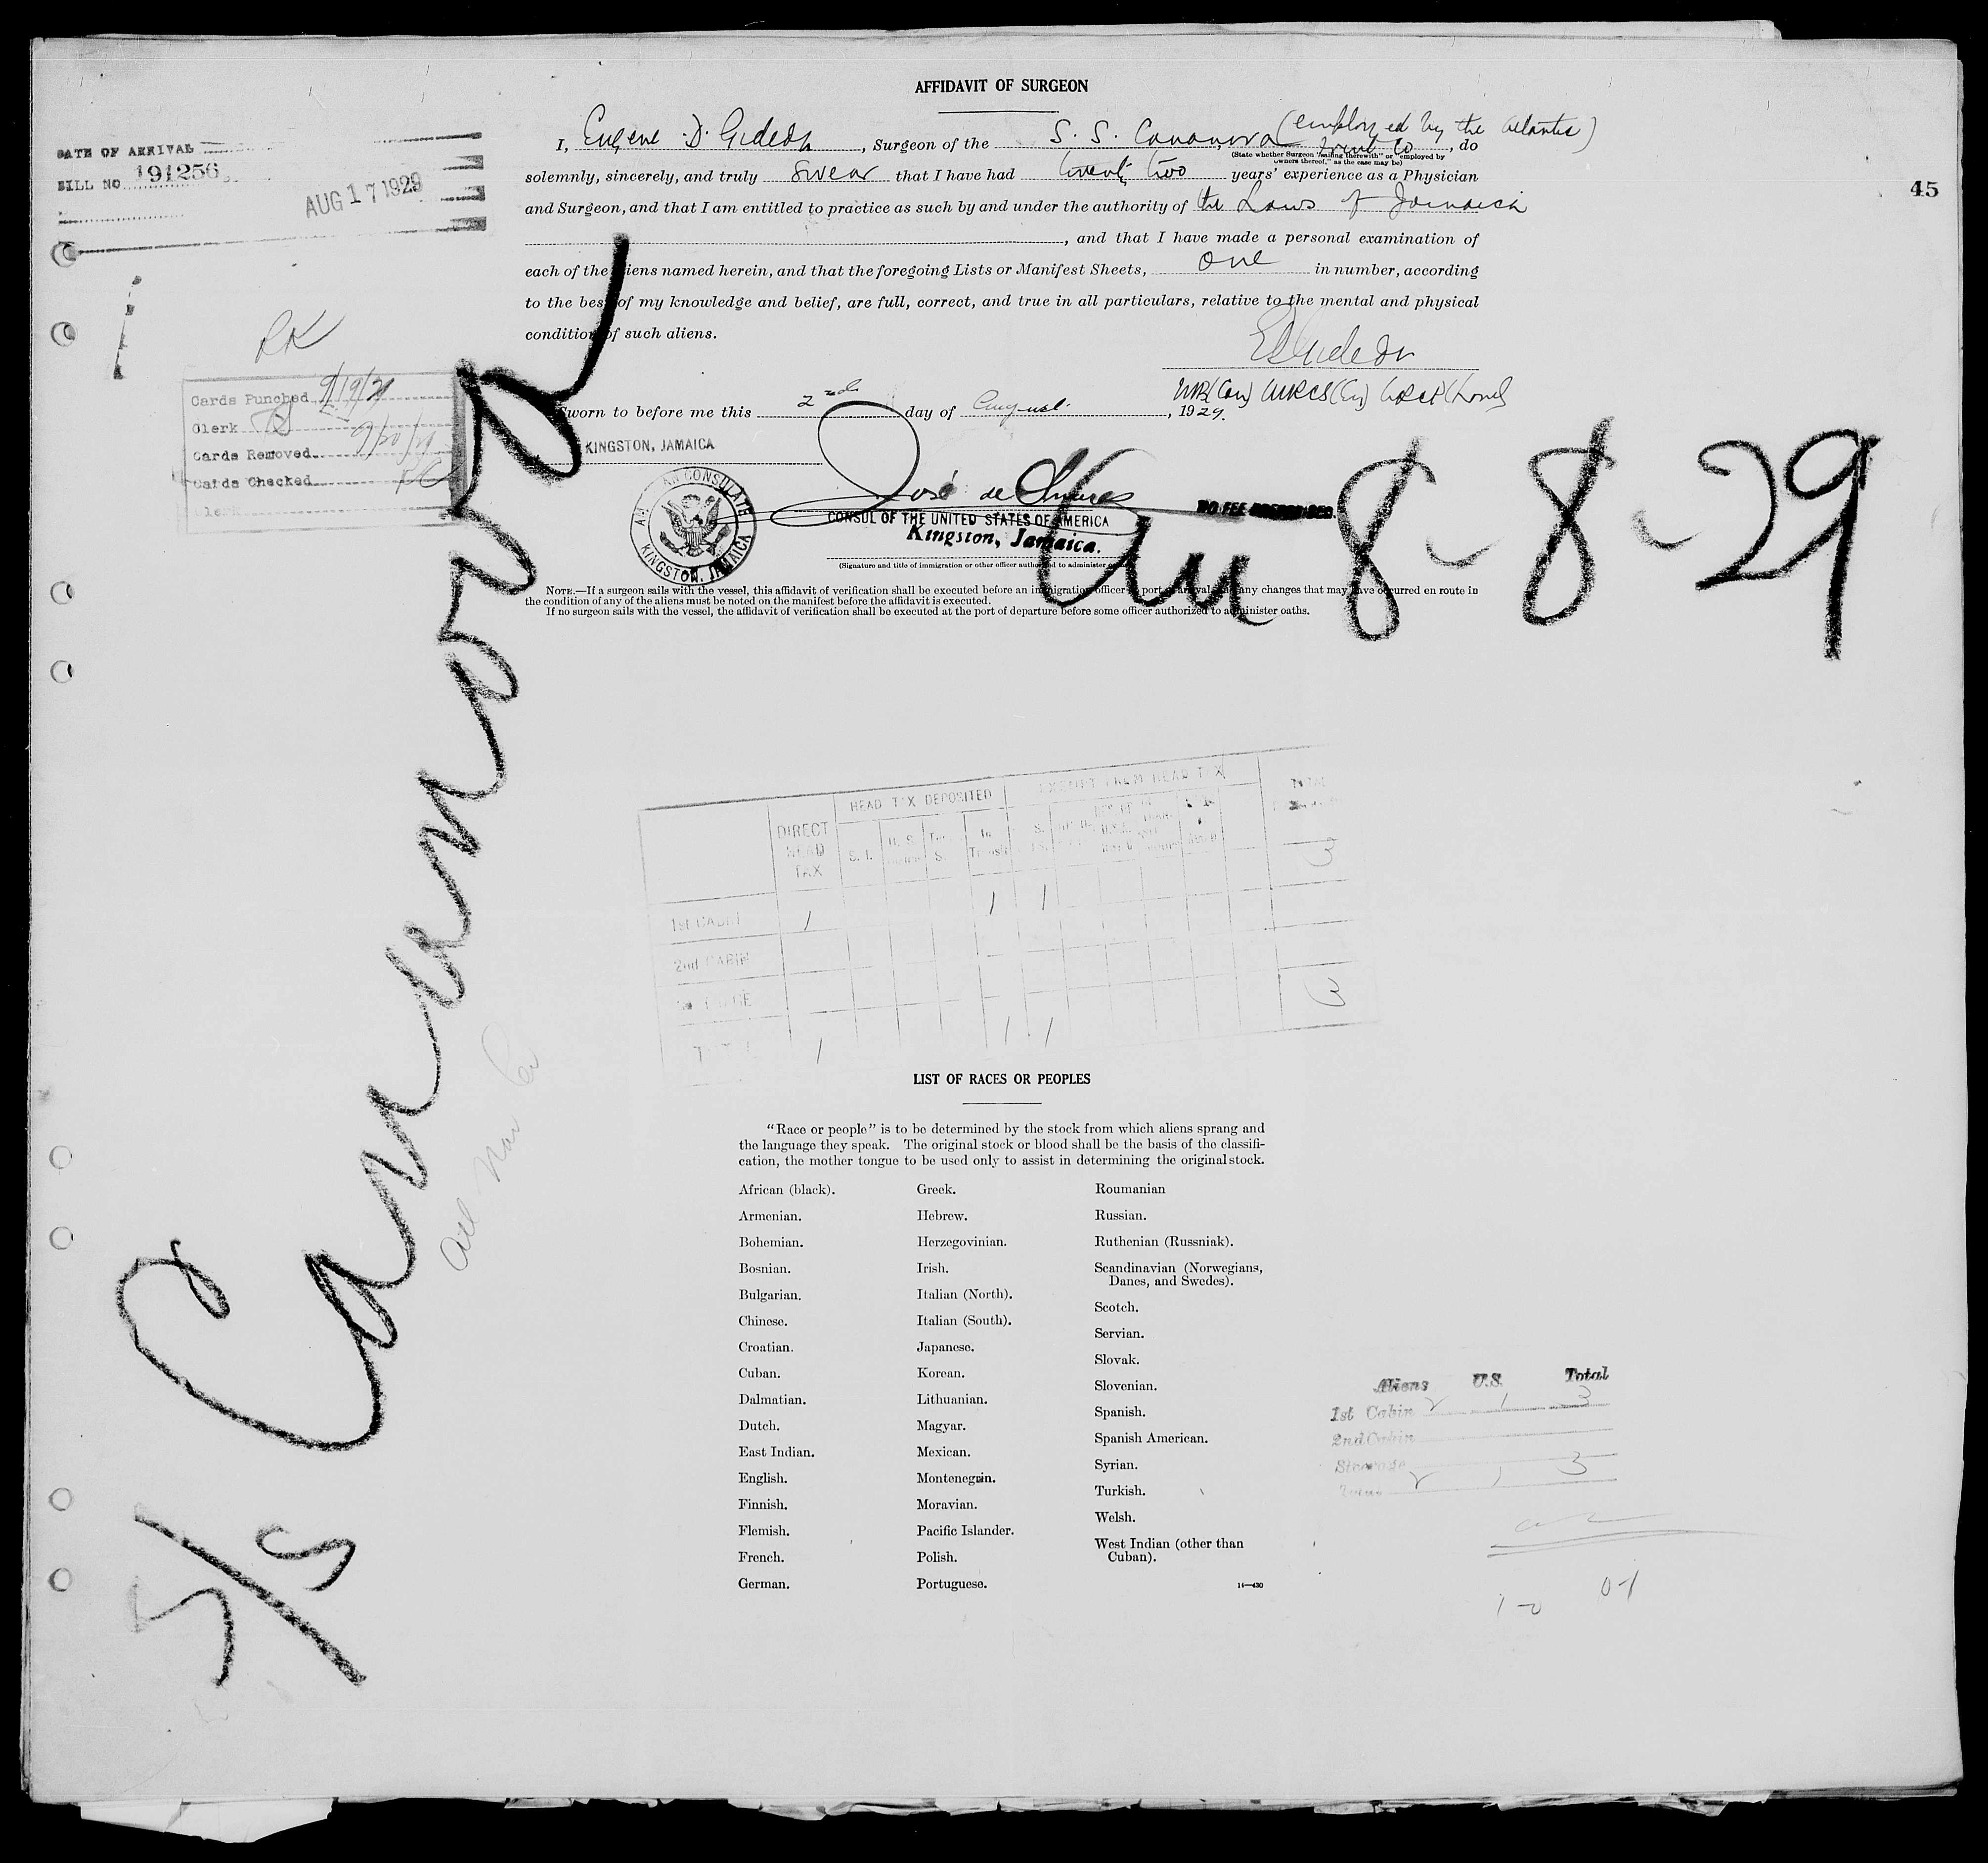 AFFIDAVIT OF SURGEON
DATE OF ARRIVAL
BILL NO. 191256
AUG 17 1929
45
I, Eugene D. Gideon, Surgeon of the S. S. Cananova (employed by the Atlantic Fruit Co), do
(State whether Surgeon "sailing therewith" or "employed by owners thereof," as the case may be)
solemnly, sincerely, and truly swear that I have had twenty two years' experience as a Physician
and Surgeon, and that I am entitled to practice as such by and under the authority of the Laws of Jamaica
, and that I have made a personal examination of
each of the aliens named herein, and that the foregoing Lists or Manifest Sheets, one in number, according
to the best of my knowledge and belief, are full, correct, and true in all particulars, relative to the mental and physical
condition of such aliens.
EDGideon
MRCS(Eng) LRCP(Lond)
Sworn to before me this 2nd day of August, 1929.
KINGSTON, JAMAICA
AMERICAN CONSULATE
KINGSTON, JAMAICA
José de Olivares
CONSUL OF THE UNITED STATES OF AMERICA
Kingston, Jamaica.
NO FEE PRESCRIBED.
(Signature and title of immigration or other officer authorized to administer
NOTE.—If a surgeon sails with the vessel, this affidavit of verification shall be executed before an immigration officer port arrival any changes that may have occurred en route in
the condition of any of the aliens must be noted on the manifest before the affidavit is executed.
If no surgeon sails with the vessel, the affidavit of verification shall be executed at the port of departure before some officer authorized to administer oaths.
RK
Cards Punched 9/19/29
Clerk
Cards Removed 9/20/29
Cards Checked
Clerk
S/S Cananova
8-8-29
HEAD TAX DEPOSITED
EXEMPT FROM HEAD TAX
TOTAL
DIRECT HEAD TAX
S. I.
In Transit
1st CABIN 1 1 1 3
2nd CABIN
TOTAL 1 1 1 3
LIST OF RACES OR PEOPLES
"Race or people" is to be determined by the stock from which aliens sprang and
the language they speak. The original stock or blood shall be the basis of the classifi-
cation, the mother tongue to be used only to assist in determining the original stock.
African (black).
Armenian.
Bohemian.
Bosnian.
Bulgarian.
Chinese.
Croatian.
Cuban.
Dalmatian.
Dutch.
East Indian.
English.
Finnish.
Flemish.
French.
German.
Greek.
Hebrew.
Herzegovinian.
Irish.
Italian (North).
Italian (South).
Japanese.
Korean.
Lithuanian.
Magyar.
Mexican.
Montenegrin.
Moravian.
Pacific Islander.
Polish.
Portuguese.
Roumanian
Russian.
Ruthenian (Russniak).
Scandinavian (Norwegians,
Danes, and Swedes).
Scotch.
Servian.
Slovak.
Slovenian.
Spanish.
Spanish American.
Syrian.
Turkish.
Welsh.
West Indian (other than
Cuban).
14—430
Aliens U.S. Total
1st Cabin 2 1 3
2nd Cabin
Steerage
Total 2 1 3
1-0 0-1